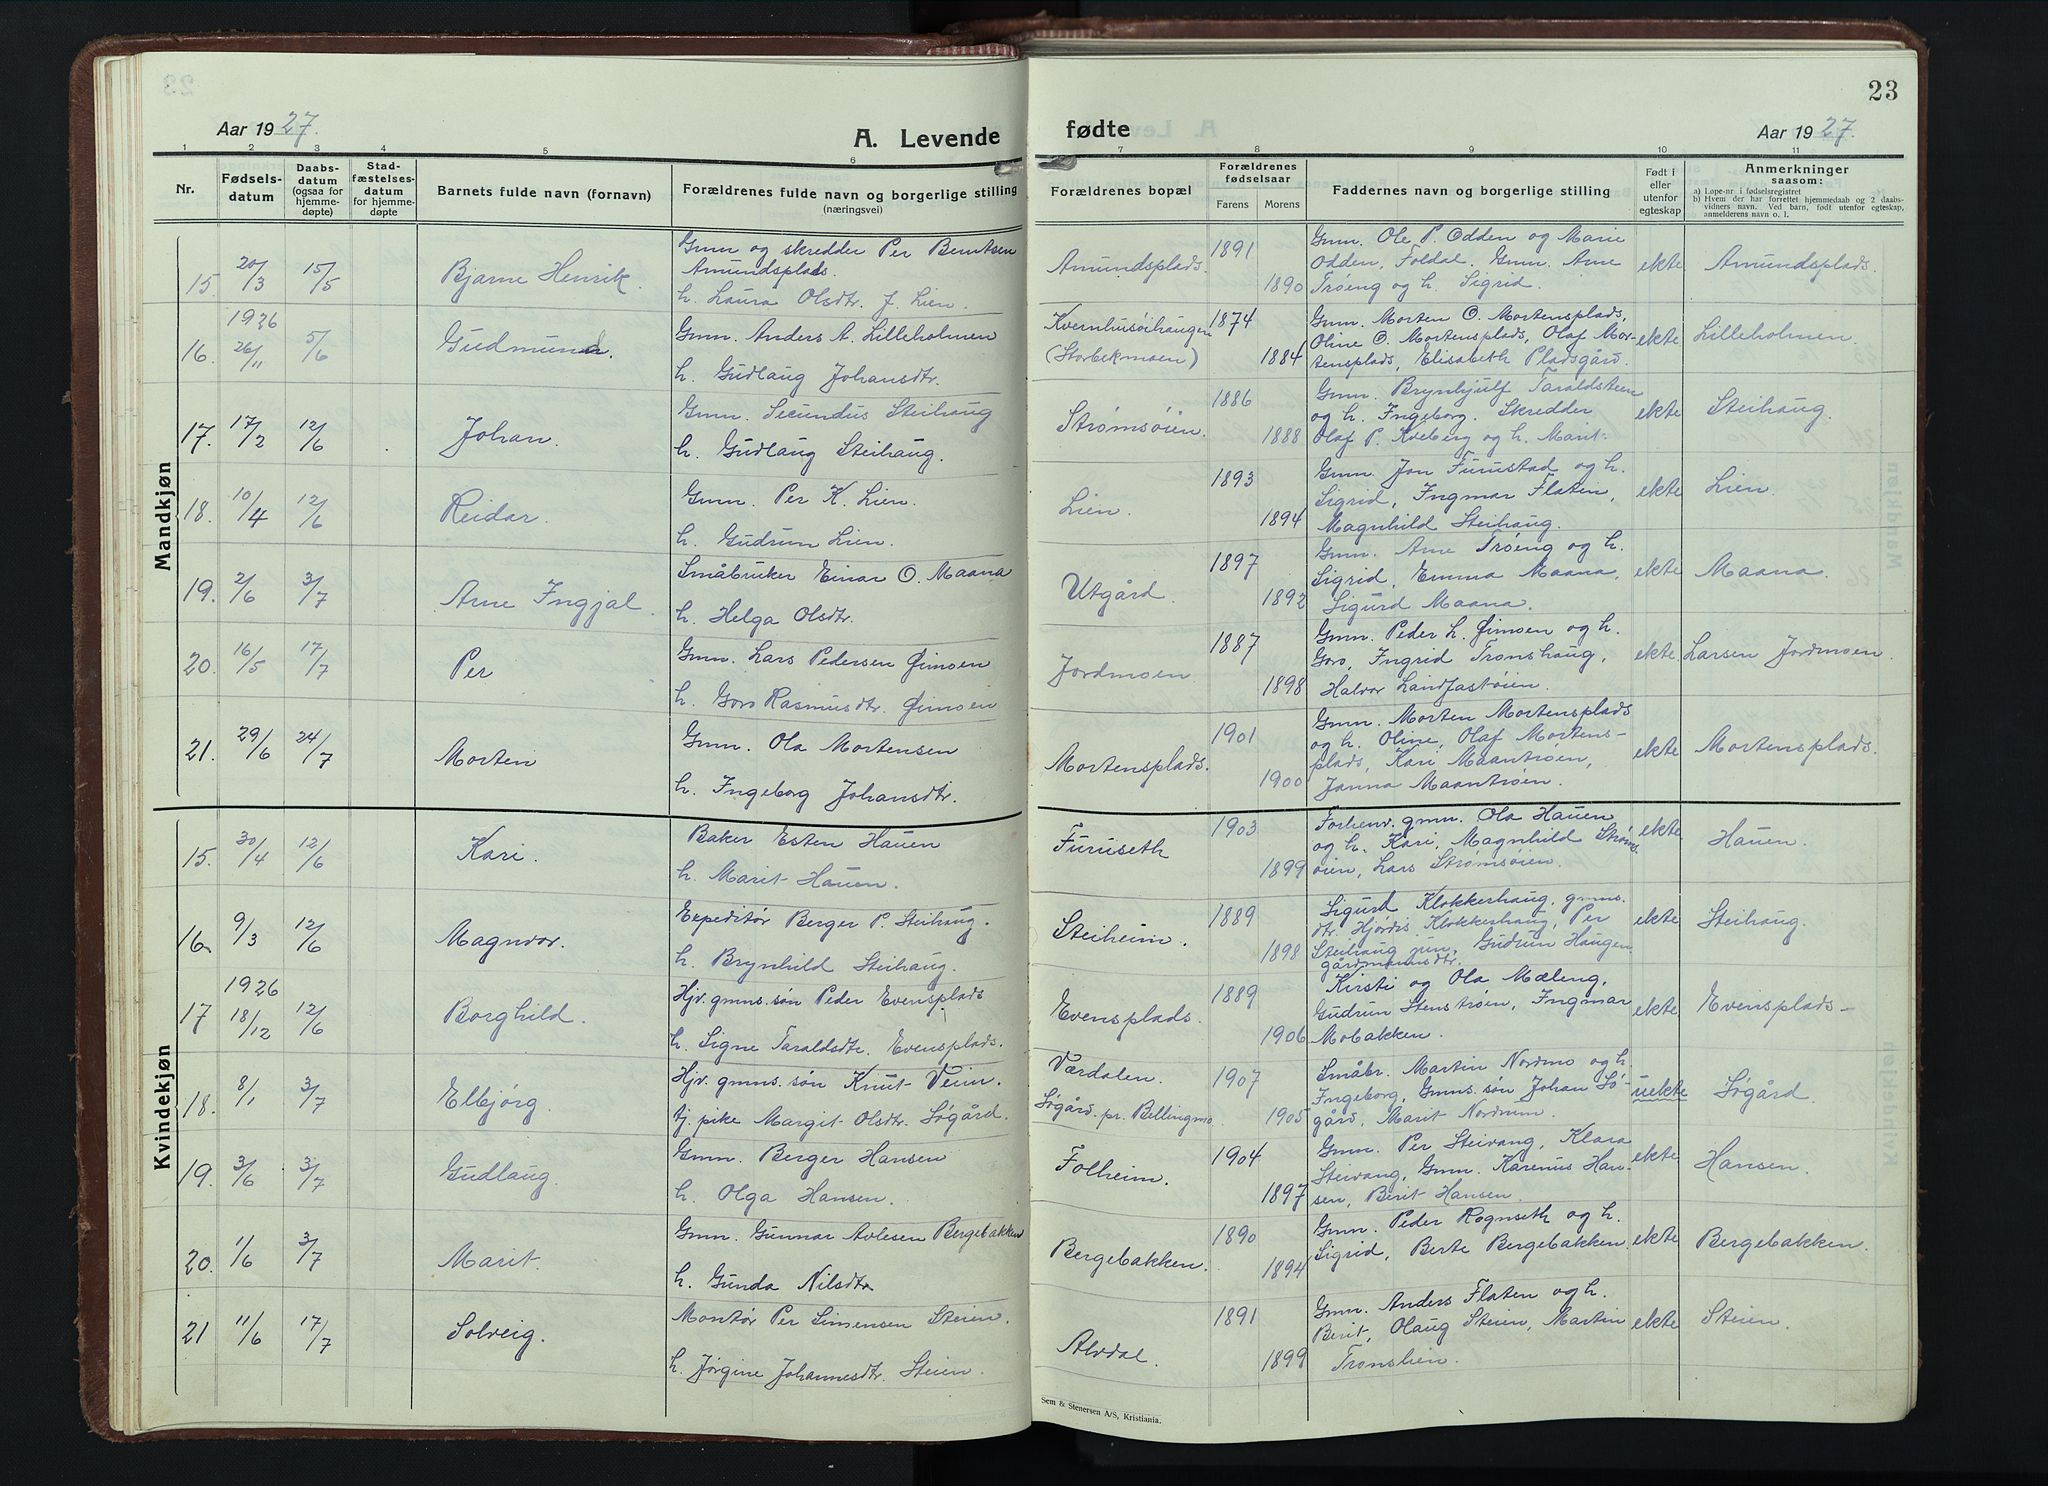 23
Aar 1927.
A. Levende
fødte
Aar 1927.
1 2 3 4 5 6 7 8 9 10 11
Nr.
Fødsels-
datum
Daabs-
datum
(ogsaa for
hjemme-
døpte)
Stad-
fæstelses-
datum
for hjemme-
døpte
Barnets fulde navn (fornavn)
Forældrenes fulde navn og borgerlige stilling
(næringsvei)
Forældrenes bopæl
Forældrenes
fødselsaar
Farens Morens
Faddernes navn og borgerlige stilling
Født i
eller
utenfor
egteskap
Anmerkninger
saasom:
a) Løpe-nr. i fødselsregistret
b) Hvem der har forrettet hjemmedaab og 2 daabs-
vidners navn. Ved barn, født utenfor egteskap,
anmelderens navn o. l.
Mandkjøn
15. 20/3 15/5 Bjarne Henrik.
Gmn og skredder Per Berntsen
Amundsplads.
h. Laura Olsdtr. f. Lien.
Amundsplads. 1891 1890
Gmn. Ole P. Odden og Marie
Odden, Foldal. Gmn. Arne
Trøeng og h. Sigrid.
ekte Amundsplads.
16. 1926 26/11 5/6 Gudmund.
Gmn. Anders A. Lilleholmen
h. Gudlaug Johansdtr.
Kvernhusøihaugen
(Storbekmoen) 1874 1884
Gmn. Morten O. Mortensplads,
Oline O. Mortensplads, Olaf Mor-
tensplads, Elisabeth Pladsgård.
ekte Lilleholmen.
17. 17/2 12/6 Johan.
Gmn. Secundus Steihaug
h. Gudlaug Steihaug.
Strømsøien. 1886 1888
Gmn. Brynhjulf Taraldsteen
og h. Ingeborg. Skredder
Olaf P. Kveberg og h. Marit.
ekte Steihaug.
18. 10/4 12/6 Reidar.
Gmn. Per K. Lien.
h. Gudrun Lien.
Lien. 1893 1894
Gmn. Jon Furustad og h.
Sigrid, Ingmar Flaten,
Magnhild Steihaug.
ekte Lien.
19. 2/6 3/7 Arne Ingjal.
Småbruker Einar O. Maana
h. Helga Olsdtr.
Utgård. 1897 1892
Gmn. Arne Trøeng og h.
Sigrid, Emma Maana,
Sigurd Maana.
ekte Maana.
20. 16/5 17/7 Per
Gmn. Lars Pedersen Gimoen
h. Goro Rasmusdtr. Gimoen
Jordmoen 1887 1898
Gmn. Peder L. Gimoen og h.
Goro, Ingrid Tronshaug,
Halvor Landfastøien.
ekte Larsen Jordmoen.
21. 29/6 24/7 Morten
Gmn. Ola Mortensen
h. Ingeborg Johansdtr.
Mortensplads. 1901 1900
Gmn. Morten Mortensplads
og h. Oline, Olaf Mortens-
plads, Kari Maantrøen,
Janna Maantrøen.
ekte Mortensplads.
Kvindekjøn
15. 30/4 12/6 Kari.
Baker Esten Hauen
h. Marit Hauen.
Furuseth 1903 1899
Forhenv. gmn. Ola Hauen
og h. Kari, Magnhild Strøms-
øien, Lars Strømsøien.
ekte Hauen.
16. 9/3 12/6 Magnvor.
Expeditør Berger P. Steihaug.
h. Brynhild Steihaug.
Steiheim. 1889 1898
Sigurd Klokkerhaug, gmns.
dtr. Hjørdis Klokkerhaug, Per
Steihaug jun. Gudrun Haugen
gårdmannsdtr.
ekte Steihaug.
17 1926 18/12 12/6 Borghild.
Hjv. gmns. søn Peder Evensplads
h. Signe Taraldsdtr. Evensplads.
Evensplads. 1889 1906
Kirsti og Ola Mæleng,
Gudrun Stenstrøen, Ingmar
Mobakken.
ekte Evensplads-
18. 8/1 3/7 Elbjørg.
Hjv. gmns. søn Knut Veim.
tj. pike Margit Olsdtr. Søgård.
Værdalen.
Søgård. pr. Bellingmo. 1907 1905
Småbr. Martin Nordmo og h.
Ingeborg, Gmns. søn Johan Sø-
gård, Marit Nordrum.
uekte Søgård.
19. 3/6 3/7 Gudlaug.
Gmn. Berger Hansen
h. Olga Hansen.
Folheim. 1904 1897
Gmn. Per Steivang, Klara
Steivang, Gmn. Karenus Han-
sen, Berit Hansen.
ekte Hansen.
20. 1/6 3/7 Marit.
Gmn. Gunnar Avlesen Bergebakken
h. Gunda Nilsdtr
Bergebakken. 1890 1894
Gmn. Peder Rognseth og h.
Sigrid, Berte Bergebakken.
ekte Bergebakken.
21 11/6 17/7 Solveig.
Montør Per Simensen Steien.
h. Jørgine Johannesdtr. Steien.
Alvdal. 1891 1899
Gmn. Anders Flaten og h.
Berit, Olaug Steien, Martin
Tronslien.
ekte Steien.
Sem & Stenersen A/S, Kristiania.